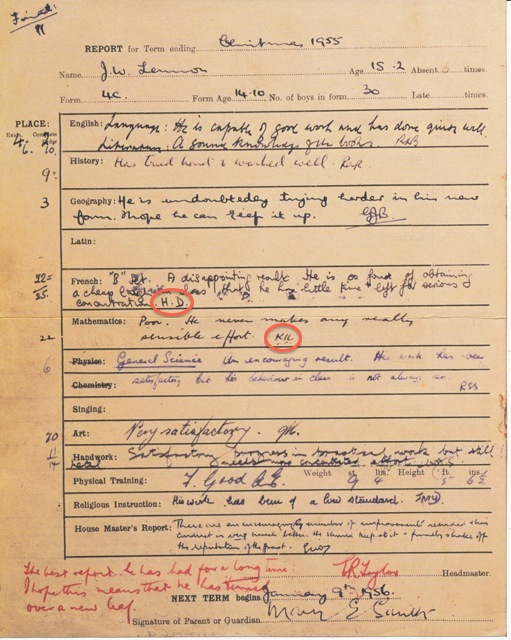 Final
REPORT for Term ending Christmas 1955
Name J.W. Lennon Age 15·2 Absent 6 times.
Form 4C. Form Age 14·10 No. of boys in form 30 Late times.
PLACE:
English: Language: He is capable of good work and has done quite well.
Literature: A sound knowledge of the books. RNB
9= History: Has tried hard & worked well.
3 Geography: He is undoubtedly trying harder in his new
form. I hope he can keep it up.
Latin:
French: "B" Set. A disappointing result. He is so fond of obtaining
a cheap in class that he has little time left for serious
concentration. H.D.
Mathematics: Poor. He never makes any really
22 sensible effort.
6 Physics: General Science An encouraging result. His work has been
Chemistry: satisfactory but his behaviour in class is not always so.
Singing:
Art: Very satisfactory.
Handwork: Satisfactory progress in work but still
Physical Training: F. Good Weight 9 st. 4 lbs. Height 5 ft. 6½ ins
Religious Instruction: His work has been of a low standard.
House Master's Report: There are an encouraging number of improvements
conduct is very much better. He should keep at it
the reputation of the past.
The best report he has had for a long time:
I hope this means that he has turned
over a new leaf.
Headmaster.
NEXT TERM begins January 9th, 1956.
Signature of Parent or Guardian Mary E. Smith